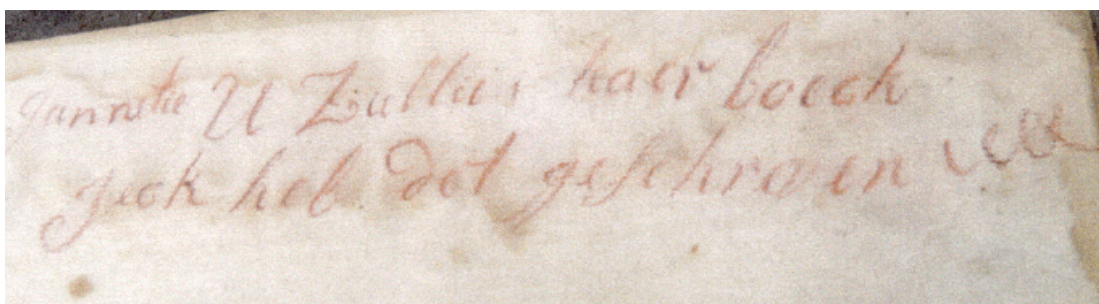 Jannetie U Ziellii haer boeck
jeck heb dat geschreven